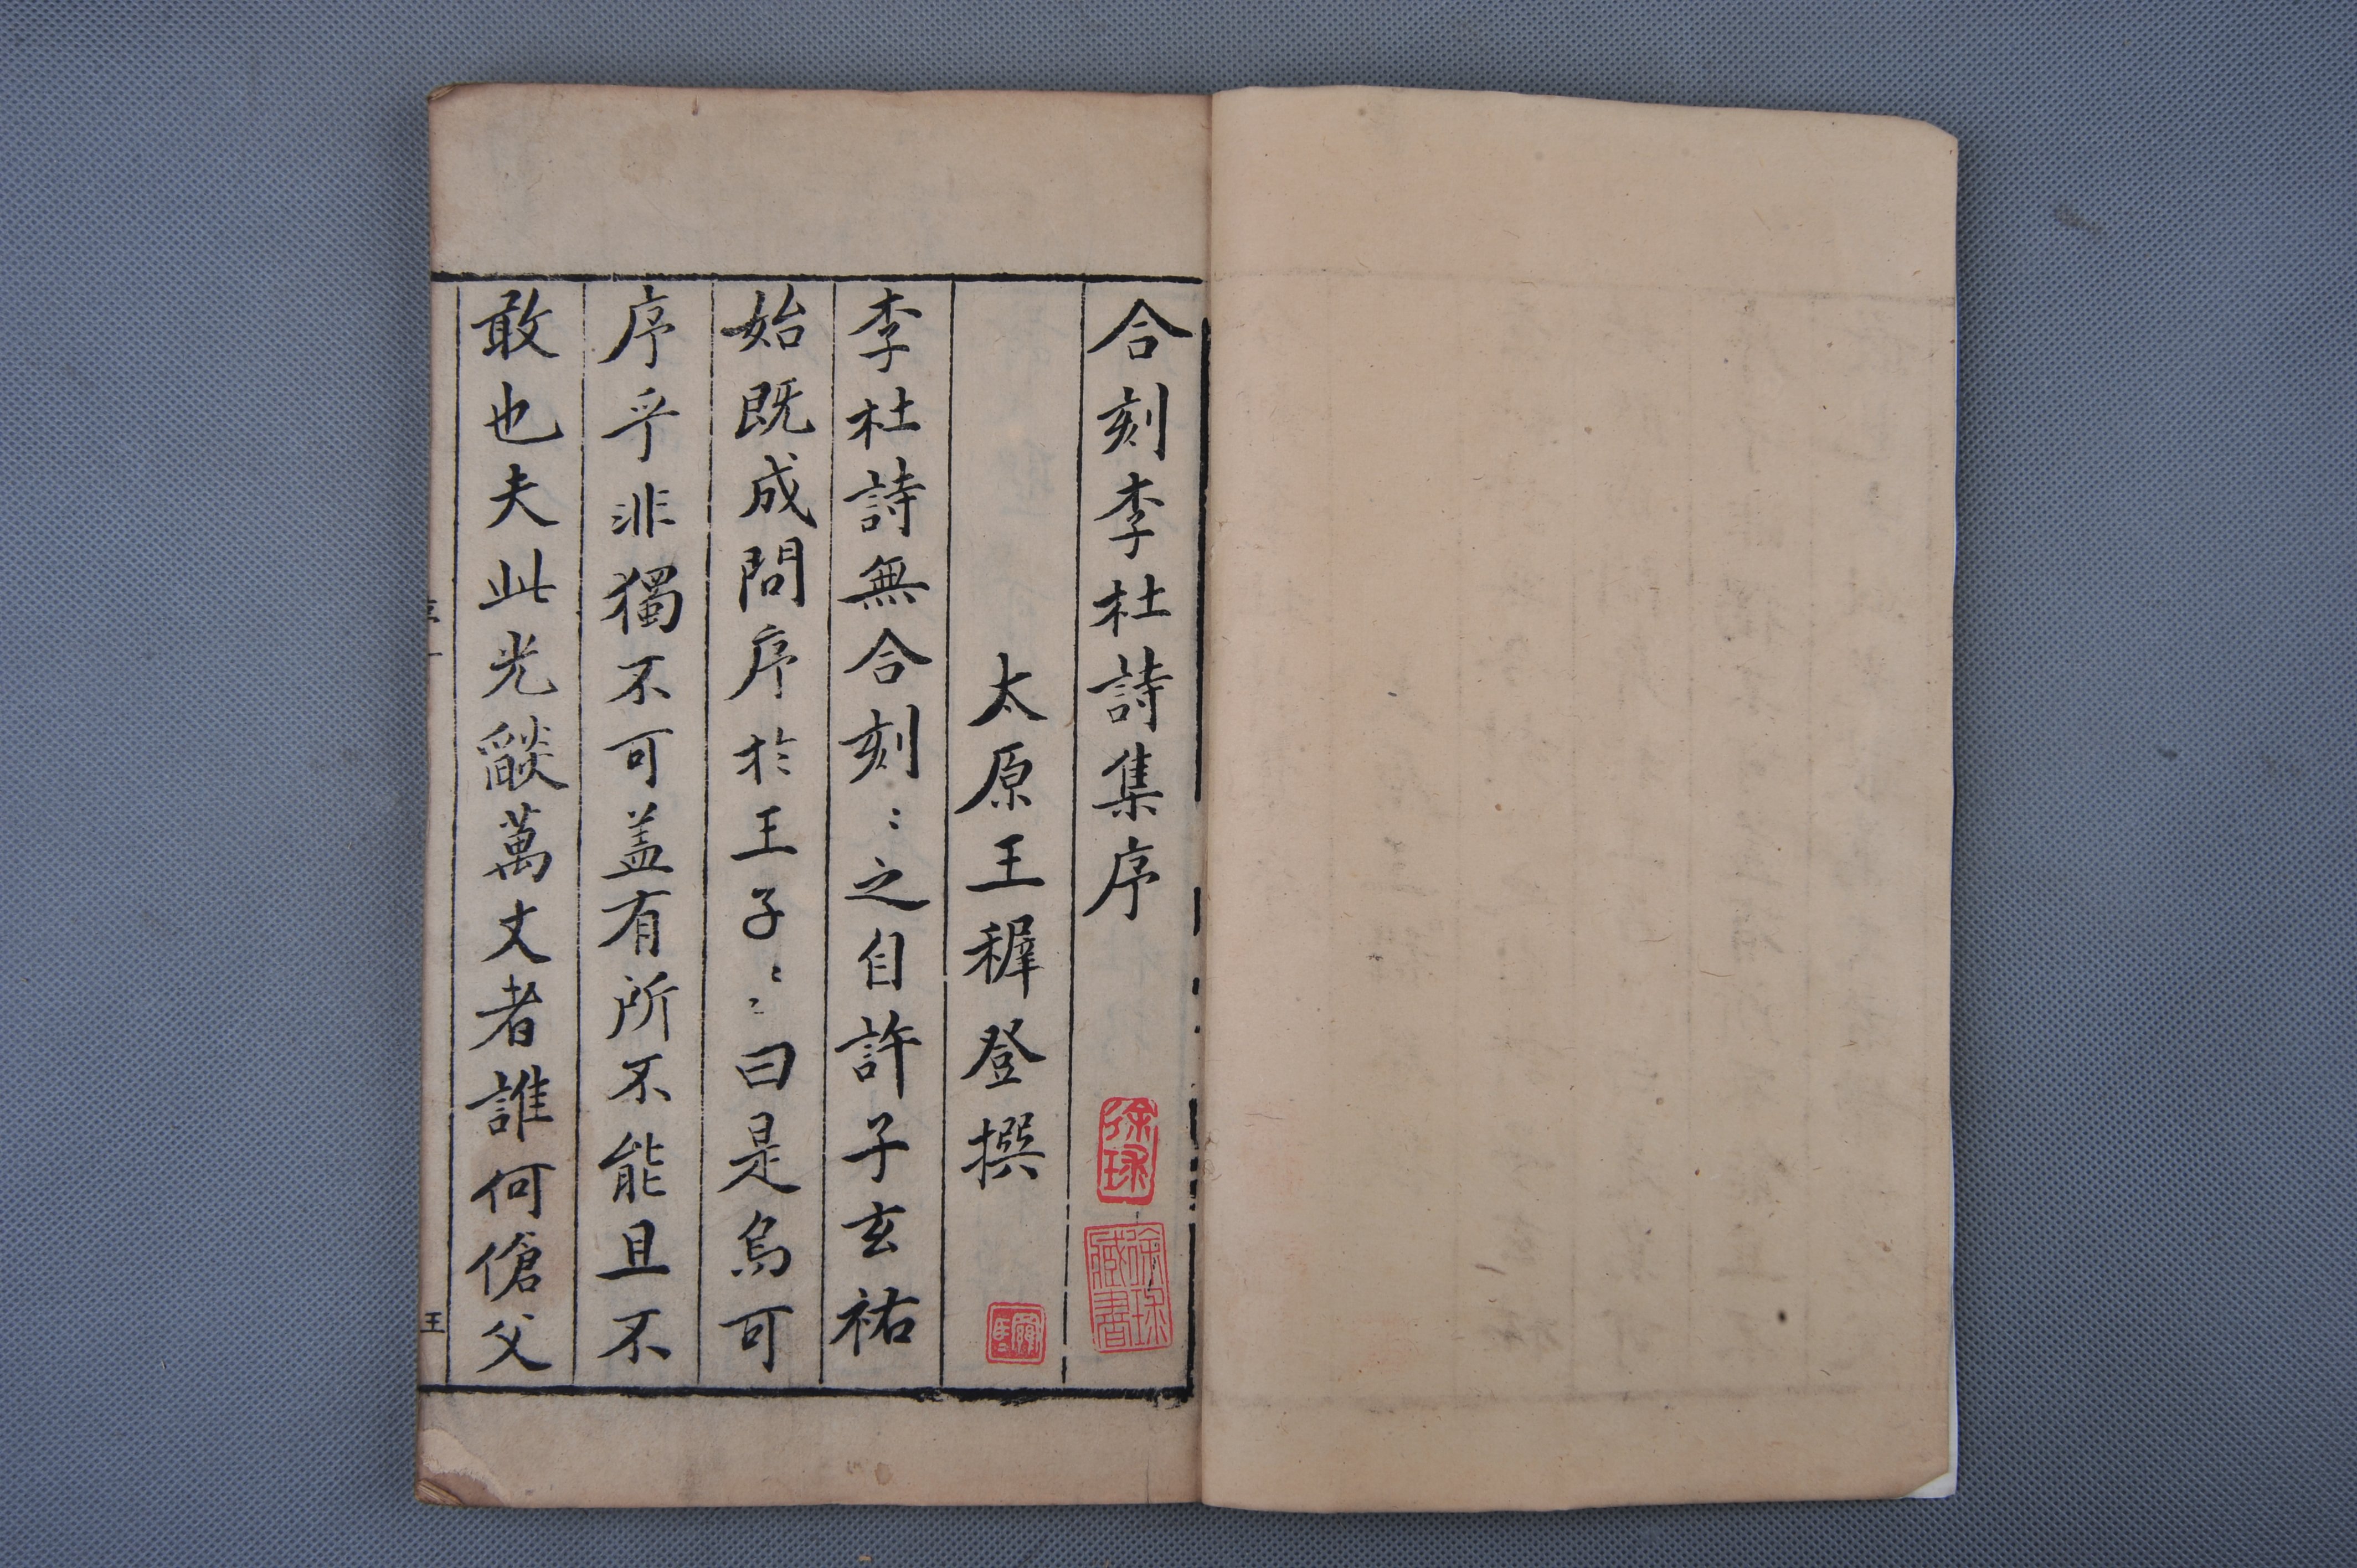 合刻李杜詩集序
徐㺭
徐㺭藏書
太原王穉登撰
李杜詩無合刻〻之自許子玄祐
始既成問序於王子〻〻曰是烏可
序乎非獨不可盖有所不能且不
敢也夫此光燄萬丈者誰何傖父
王